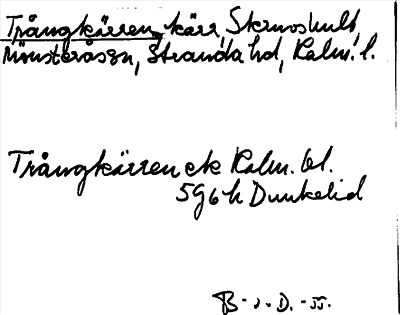 Trångkärren, kärr, Skruvshult,
Mönsterås sn, Stranda hd, Kalm. l.
Trångkärren ek Kalm. bl.
5G6h Dunkelid
B-s. D. -55.